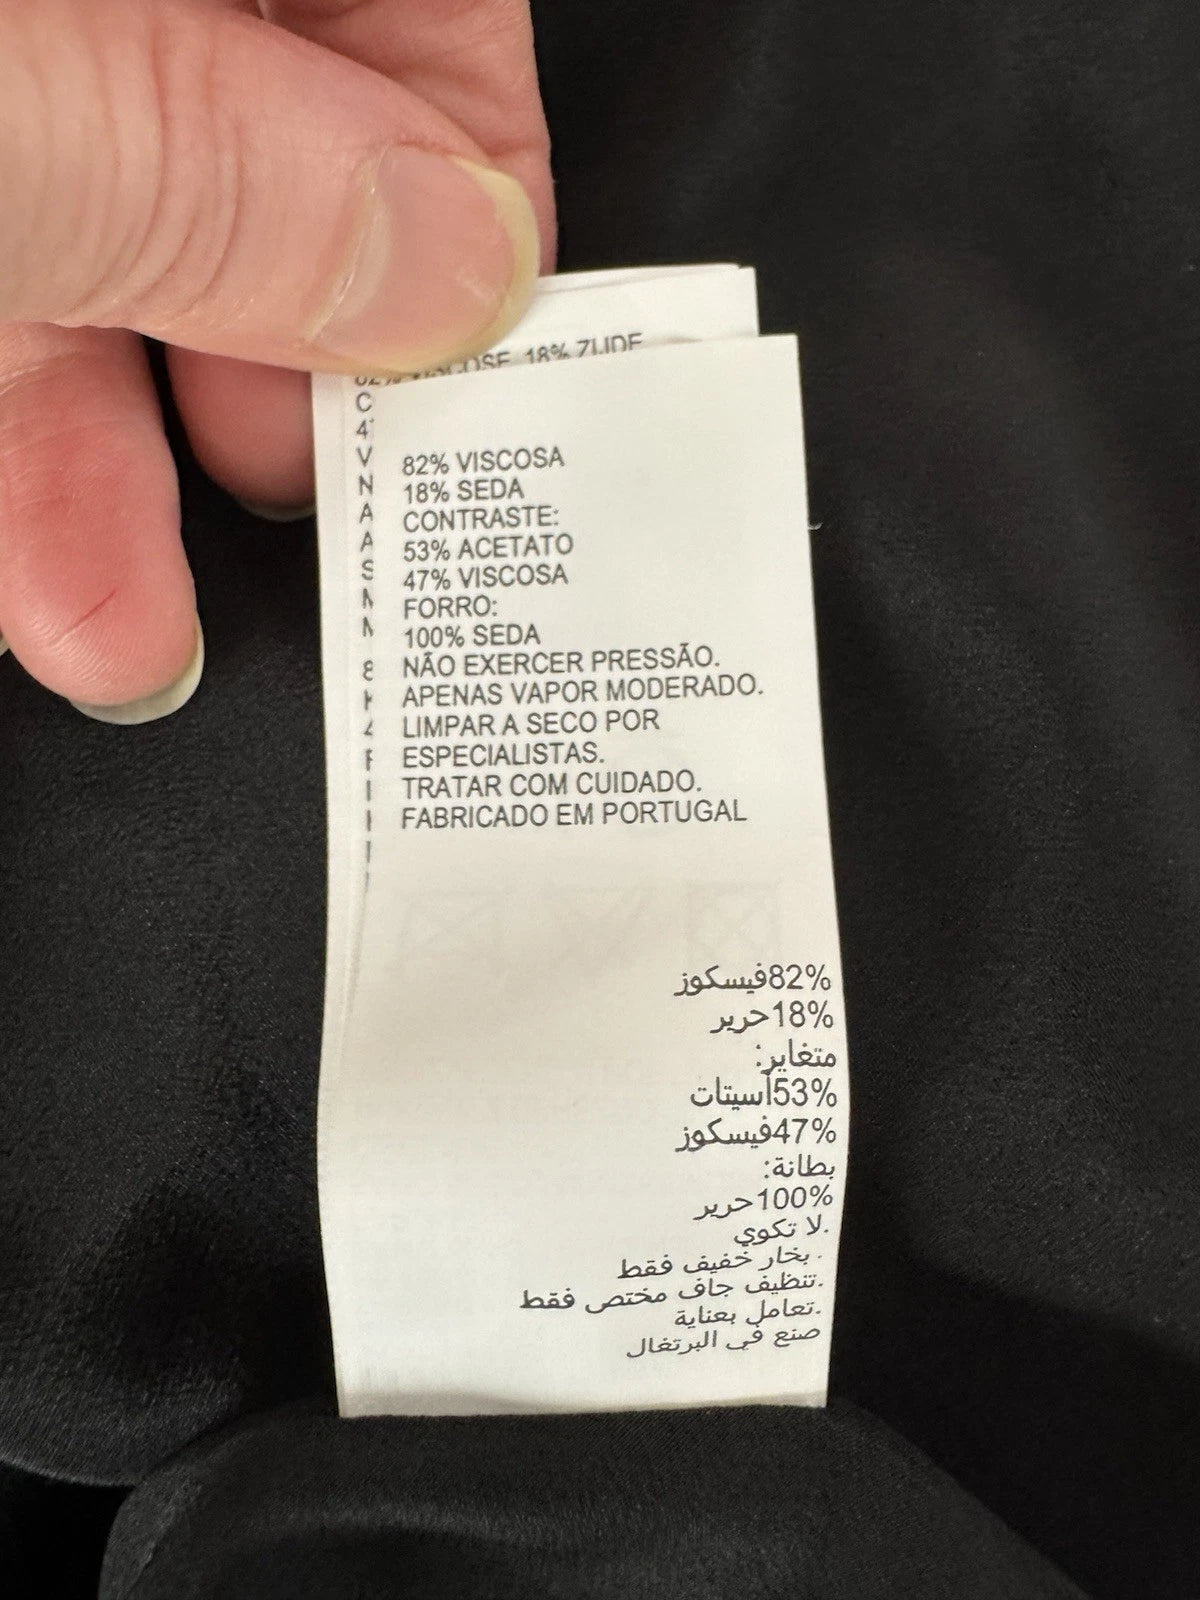 VISCOSE, 18% ZIJDE
82% VISCOSA
18% SEDA
CONTRASTE:
53% ACETATO
47% VISCOSA
FORRO:
100% SEDA
NÃO EXERCER PRESSÃO.
APENAS VAPOR MODERADO.
LIMPAR A SECO POR
ESPECIALISTAS.
TRATAR COM CUIDADO.
FABRICADO EM PORTUGAL
82%فيسكوز
18%حرير
متغاير:
53%أسيتات
47%فيسكوز
بطانة:
100%حرير
لا تكوي.
بخار خفيف فقط.
تنظيف جاف مختص فقط.
تعامل بعناية.
صنع في البرتغال